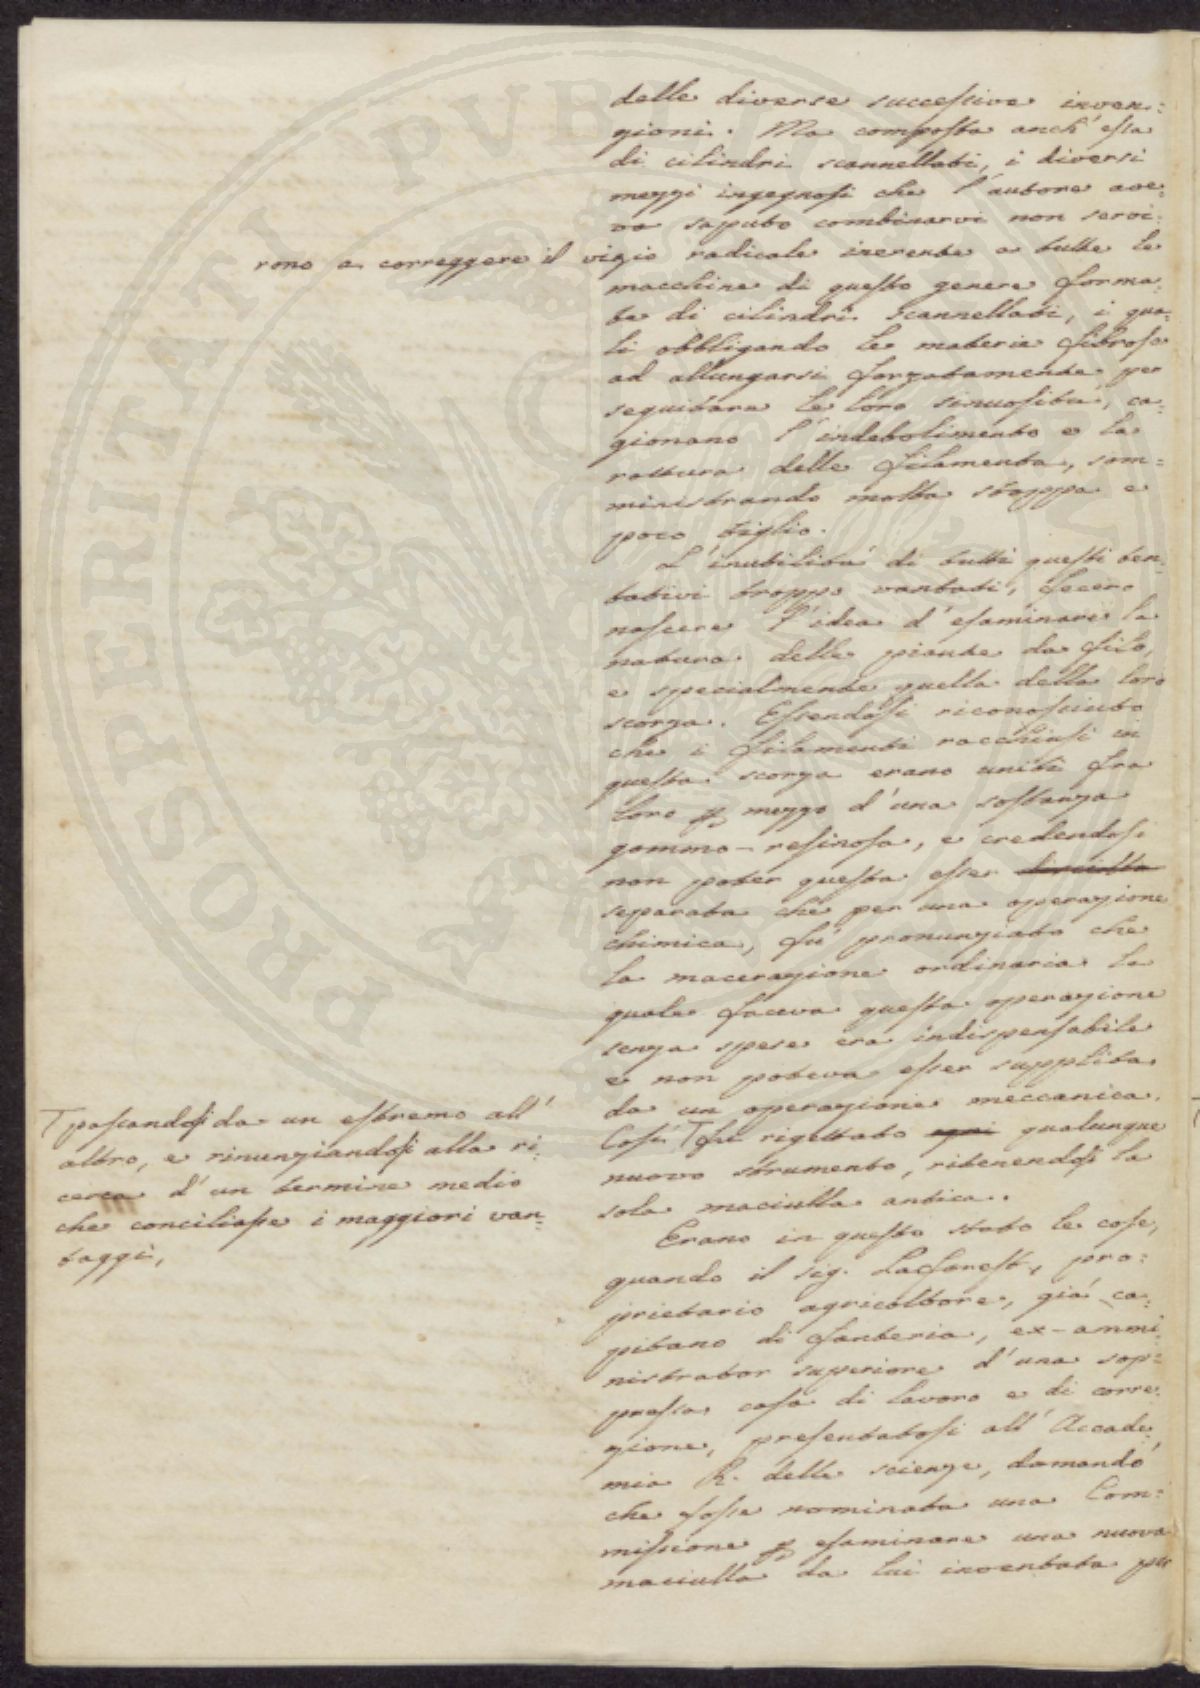 delle diverse successive inven=
zioni. Ma composta anch'essa
di cilindri scannellati, i diversi
mezzi ingegnosi che l'autore ave=
va saputo combinarvi non servi=
rono a correggere il vizio radicale inerente a tutte le
macchine di questo genere forma=
te di cilindri scannellati, i qua=
li obbligando le materie fibrose
ad allungarsi forzatamente per
seguitare le loro sinuosità, ca=
gionano l'indebolimento e la
rottura delle filamenta, som=
ministrando molta stoppa e
poco tiglio.
L'inutilità di tutti questi ten=
tativi troppo vantati, fecero
nascere l'idea d'esaminare la
natura delle piante da filo,
e specialmente quella della loro
scorza. Essendosi riconosciuto
che i filamenti racchiusi in
questa scorza erano uniti fra
loro p mezzo d'una sostanza
gommo-resinosa, e credendosi
non poter questa esser disciolta
separata che per una operazione
chimica, fu pronunziato che
la macerazione ordinaria la
quale faceva questa operazione
senza spese era indispensabile
e non poteva esser supplita
da un operazione meccanica.
Così T fu rigettato ogni qualunque
nuovo strumento, ritenendosi la
sola maciulla antica.
T passandosi da un estremo all'
altro, e rinunziandosi alla ri=
cerca d'un termine medio
che conciliasse i maggiori van=
taggi,
Erano in questo stato le cose,
quando il sig. Laforest, pro=
prietario agricoltore, già ca=
pitano di fanteria, ex-ammi=
nistrator superiore d'una sop=
pressa casa di lavoro e di corre=
zione, presentatosi all'Accade=
mia R. delle scienze, domandò
che fosse nominata una Com=
missione p esaminare una nuova
maciulla da lui inventata per
PROSPERITATI PUBLIC